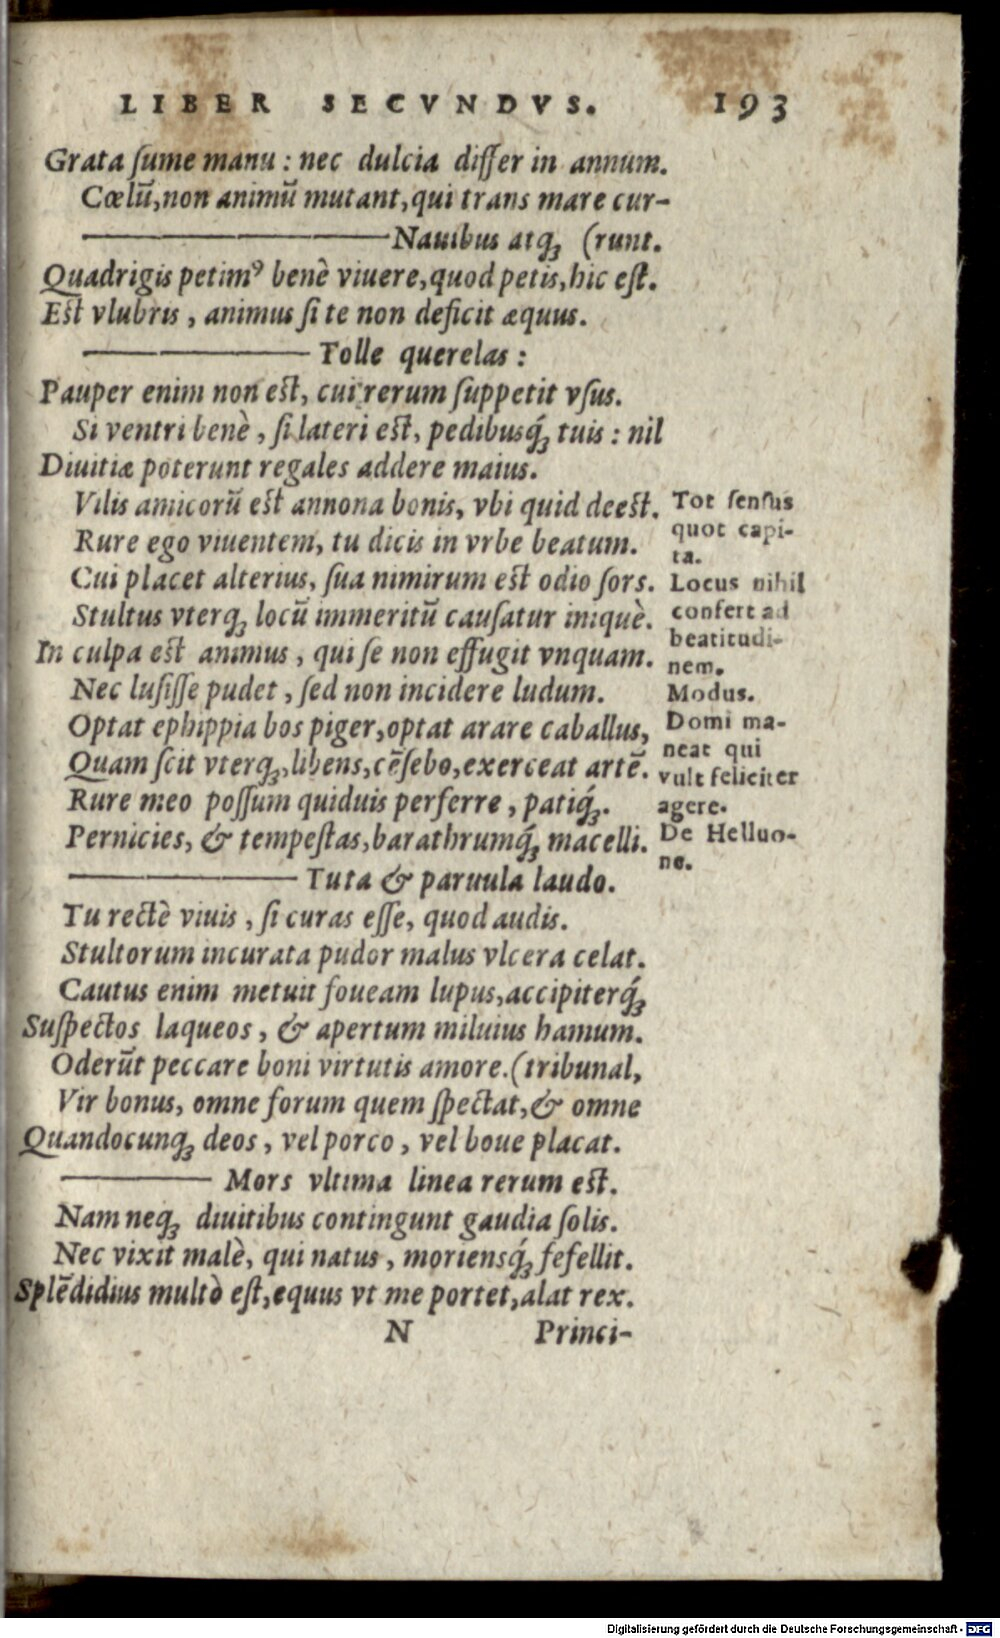 LIBER SECVNDVS. 193
Grata ſume manu : nec dulcia differ in annum.
Cœlū, non animū mutant, qui trans mare cur-
Nauibus atqꝫ (runt.
Quadrigis petimꝰ benè viuere, quod petis, hic eſt.
Eſt vlubris, animus ſi te non deficit æquus.
Tolle querelas :
Pauper enim non eſt, cui rerum ſuppetit vſus.
Si ventri benè, ſi lateri eſt, pedibusq́ꝫ tuis : nil
Diuitiæ poterunt regales addere maius.
Vilis amicorū eſt annona bonis, vbi quid deeſt.
Rure ego viuentem, tu dicis in vrbe beatum.
Cui placet alterius, ſua nimirum eſt odio ſors.
Stultus vterqꝫ locū immeritū cauſatur iniquè.
In culpa eſt animus, qui ſe non effugit vnquam.
Nec luſiſſe pudet, ſed non incidere ludum.
Optat ephippia bos piger, optat arare caballus,
Quam ſcit vterqꝫ, libens, cēſebo, exerceat artē.
Rure meo poſſum quiduis perferre, patiq́ꝫ.
Pernicies, & tempeſtas, barathrumq́ꝫ macelli.
Tuta & paruula laudo.
Tu rectè viuis, ſi curas eſſe, quod audis.
Stultorum incurata pudor malus vlcera celat.
Cautus enim metuit foueam lupus, accipiterq́ꝫ
Suſpectos laqueos, & apertum miluius hamum.
Oderūt peccare boni virtutis amore. (tribunal,
Vir bonus, omne forum quem ſpectat, & omne
Quandocunqꝫ deos, vel porco, vel boue placat.
Mors vltima linea rerum eſt.
Nam neqꝫ diuitibus contingunt gaudia ſolis.
Nec vixit malè, qui natus, moriensq́ꝫ fefellit.
Splēdidius multò eſt, equus vt me portet, alat rex.
N Princi-
Tot ſenſus
quot capi-
ta.
Locus nihil
confert ad
beatitudi-
nem.
Modus.
Domi ma-
neat qui
vult feliciter
agere.
De Helluo-
ne.
Digitalisierung gefördert durch die Deutsche Forschungsgemeinschaft - DFG